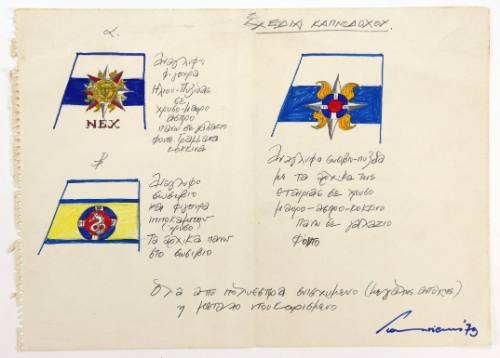 ΣΧΕΔΙΑ ΚΑΠΝΟΔΟΧΟΥ.
α.
Ανάγλυφο
φιγούρα
Ηλιου-Πυξίδας
σε
χρυσο-μαυρο
ασπρο
πανω σε γαλαζιο
φοντο. Γράμματα
κοκκινα
ΝΕΧ
β
Ανάγλυφο
σωσιβιο
και φιγουρα
ιπποκαμπου
(χρυσο)
Τα αρχικα πανω
στο σωσιβιο
Αναγλυφο σωσιβιο-πυξιδα
με τα αρχικα της
εταιριας σε χρυσο
μαυρο-ασπρο-κοκκινο
πανω σε γαλαζιο
φοντο
Ολα απο πολυεστερα ενισχυμενο (μεγαλης αντοχης)
η μεταλλο ντουκαρισμενο
'79